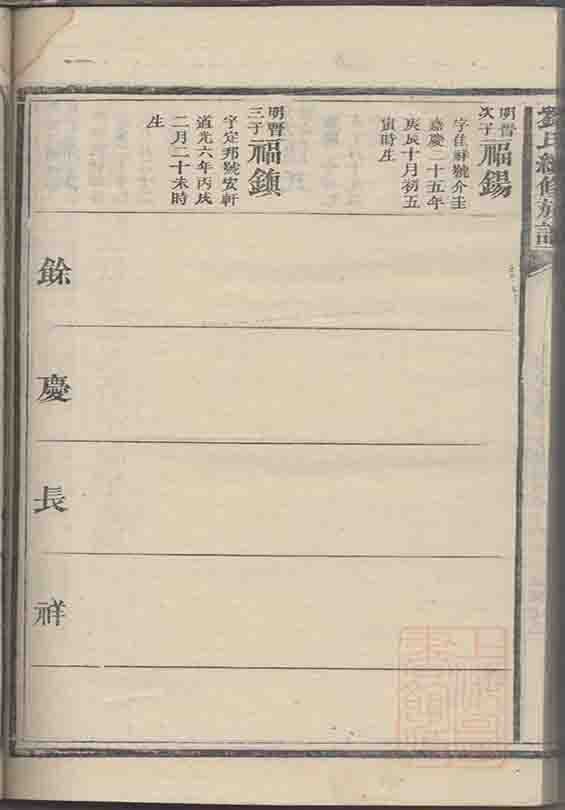 劉氏續修族譜
明晉
次子
福錫
字佳祥號介圭
嘉慶二十五年
庚辰十月初五
寅時生
明晉
三子
福鎮
字定邦號安軒
道光六年丙戌
二月二十未時
生
餘
慶
長
祥